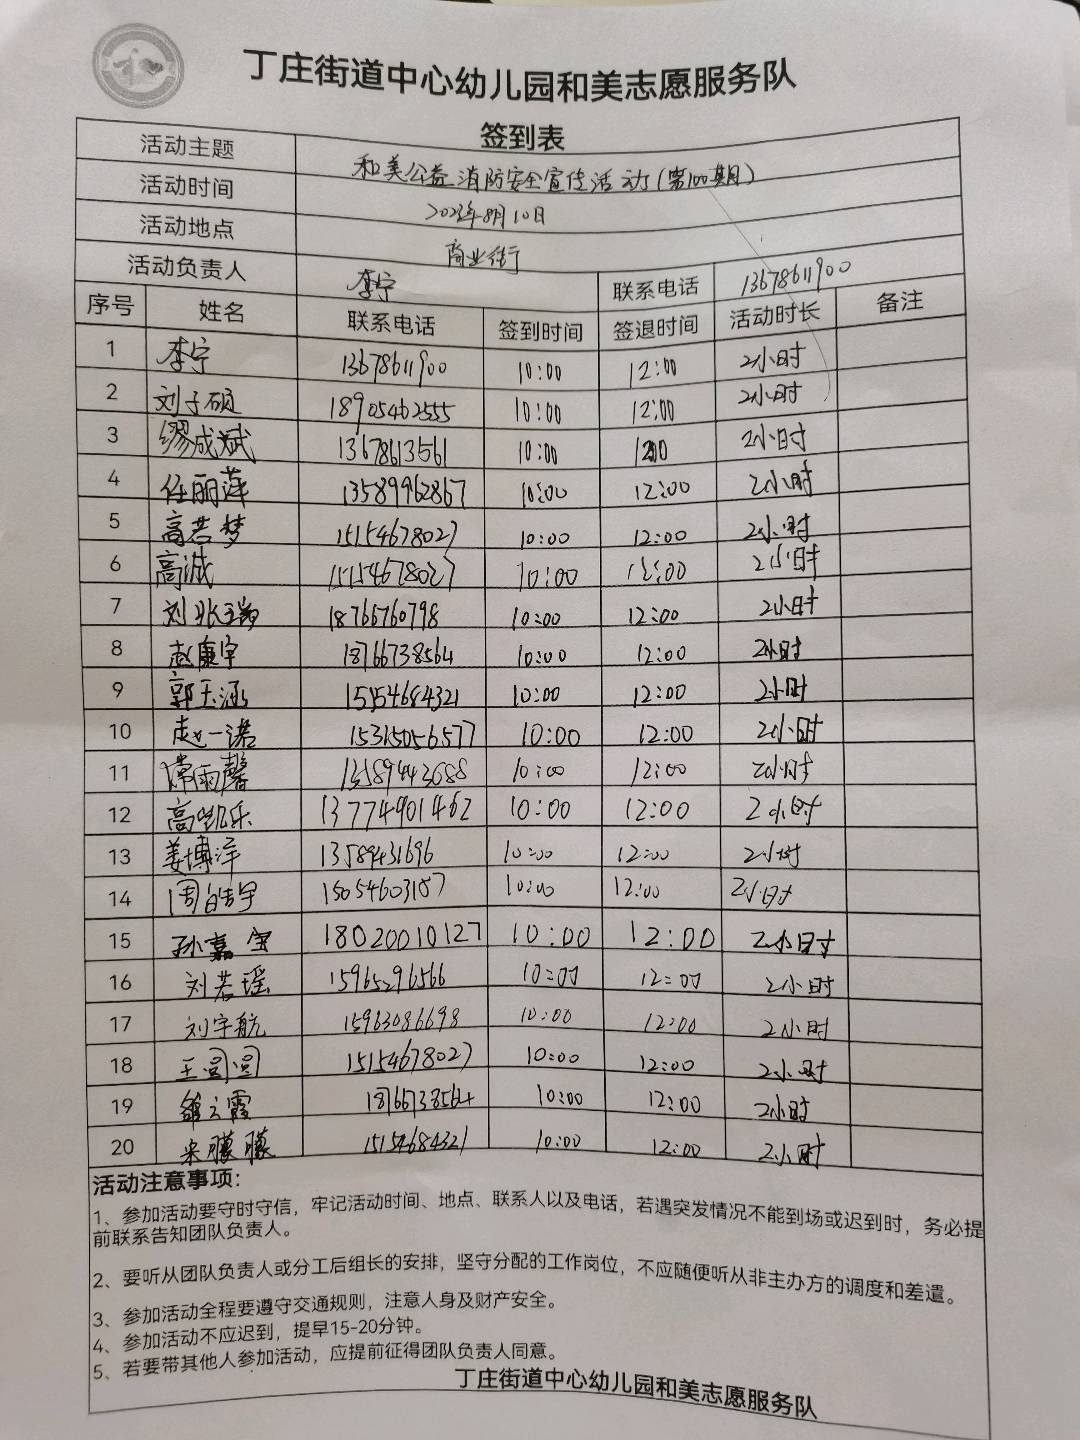 和
丁庄街道中心幼儿园和美志愿服务队
签到表
活动主题 和美公益消防安全宣传活动(第100期)
活动时间 2023年8月10日
活动地点 商业街
活动负责人 李宁 联系电话 13678611900
序号 姓名 联系电话 签到时间 签退时间 活动时长 备注
1 李宁 13678611900 10:00 12:00 2小时
2 刘子硕 18905462555 10:00 12:00 2小时
3 缪成斌 13678613561 10:00 1200 2小时
4 任丽萍 13589962867 10:00 12:00 2小时
5 高若梦 15154678027 10:00 12:00 2小时
6 高诚 15154678027 10:00 12:00 2小时
7 刘张瑞 18766760798 10:00 12:00 2小时
8 赵康宇 18766738564 10:00 12:00 2小时
9 郭玉涵 15154684321 10:00 12:00 2小时
10 赵一诺 15315056577 10:00 12:00 2小时
11 常雨馨 13589443688 10:00 12:00 2小时
12 高凯乐 13774901462 10:00 12:00 2小时
13 姜博洋 13589431696 10:00 12:00 2小时
14 周皓宇 15054603157 10:00 12:00 2小时
15 孙嘉宝 18020010127 10:00 12:00 2小时
16 刘若瑶 15965296566 10:00 12:00 2小时
17 刘宇航 15963086698 10:00 12:00 2小时
18 王圆圆 15154678027 10:00 12:00 2小时
19 云霞 18766738564 10:00 12:00 2小时
20 宋朦朦 15154684321 10:00 12:00 2小时
活动注意事项:
1、参加活动要守时守信，牢记活动时间、地点、联系人以及电话，若遇突发情况不能到场或迟到时，务必提
前联系告知团队负责人。
2、要听从团队负责人或分工后组长的安排，坚守分配的工作岗位，不应随便听从非主办方的调度和差遣。
3、参加活动全程要遵守交通规则，注意人身及财产安全。
4、参加活动不应迟到，提早15-20分钟。
5、若要带其他人参加活动，应提前征得团队负责人同意。
丁庄街道中心幼儿园和美志愿服务队